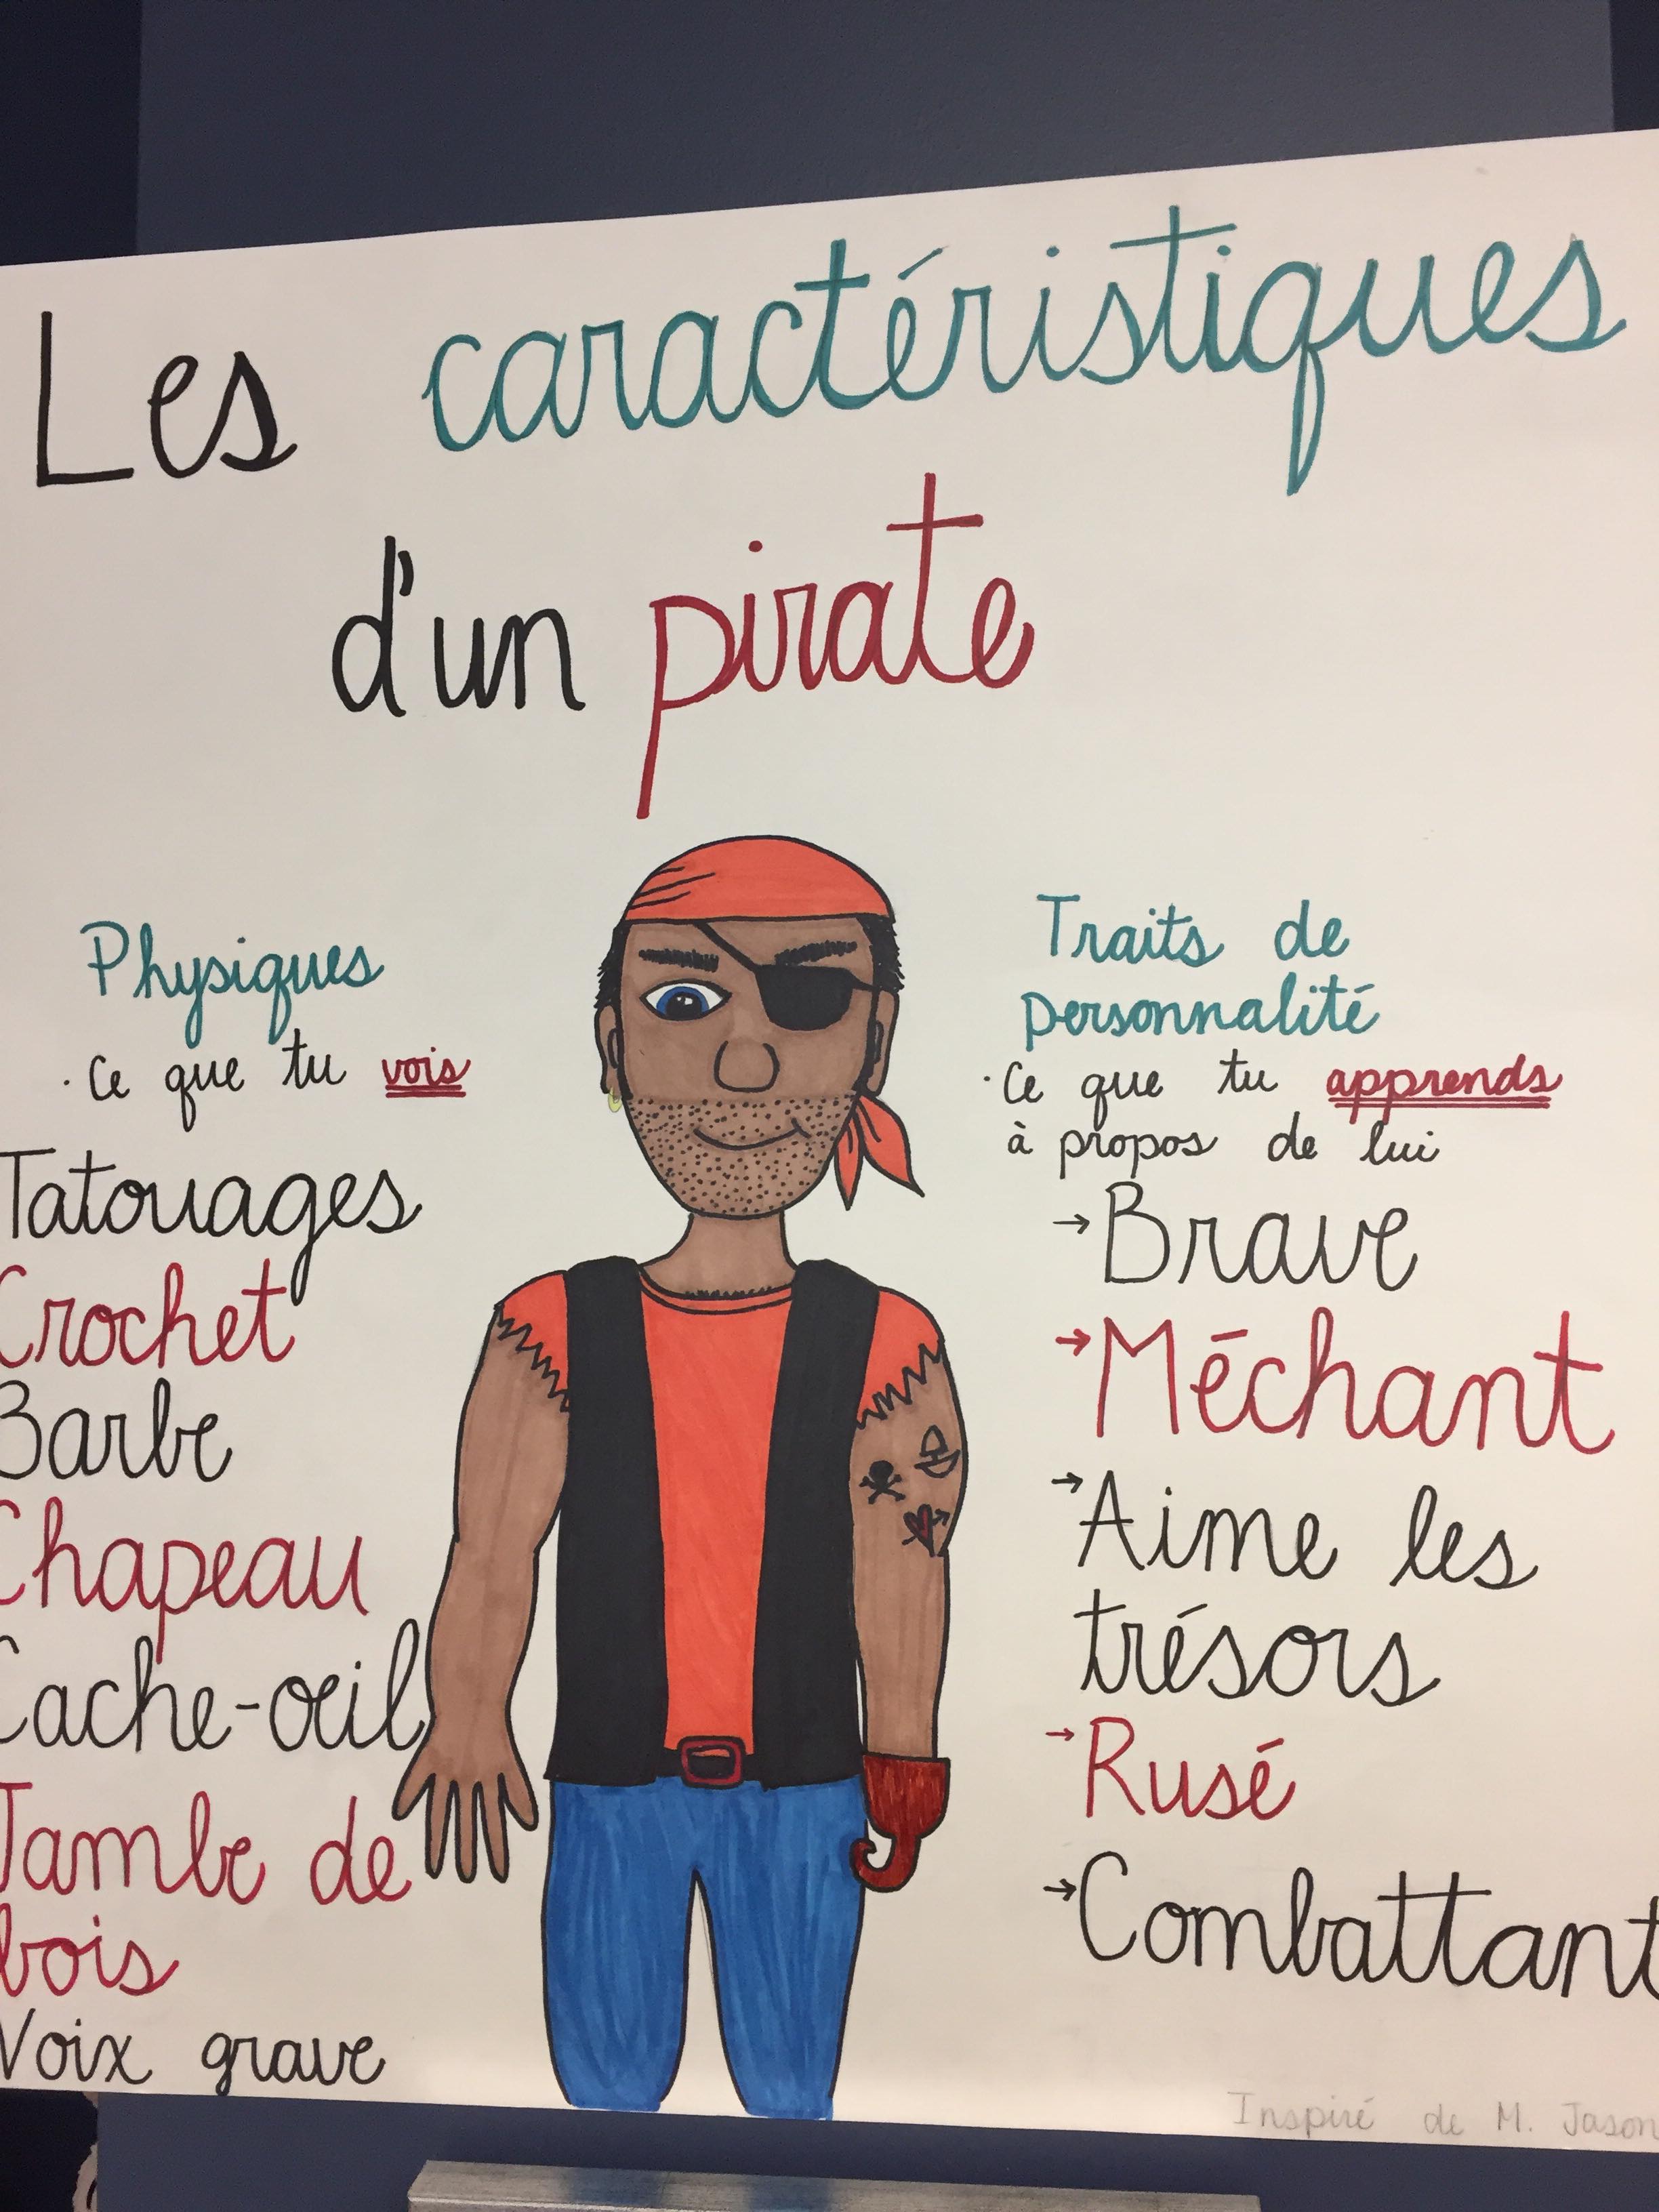 Les caractéristiques
d'un pirate
Physiques
· Ce que tu vois
Tatouages
Crochet
Barbe
Chapeau
Cache-œil
Jambe de
bois
Voix grave
Traits de
personnalité
· Ce que tu apprends
à propos de lui
→ Brave
→ Méchant
→ Aime les
trésors
→ Rusé
→ Combattant
Inspiré de M. Jason